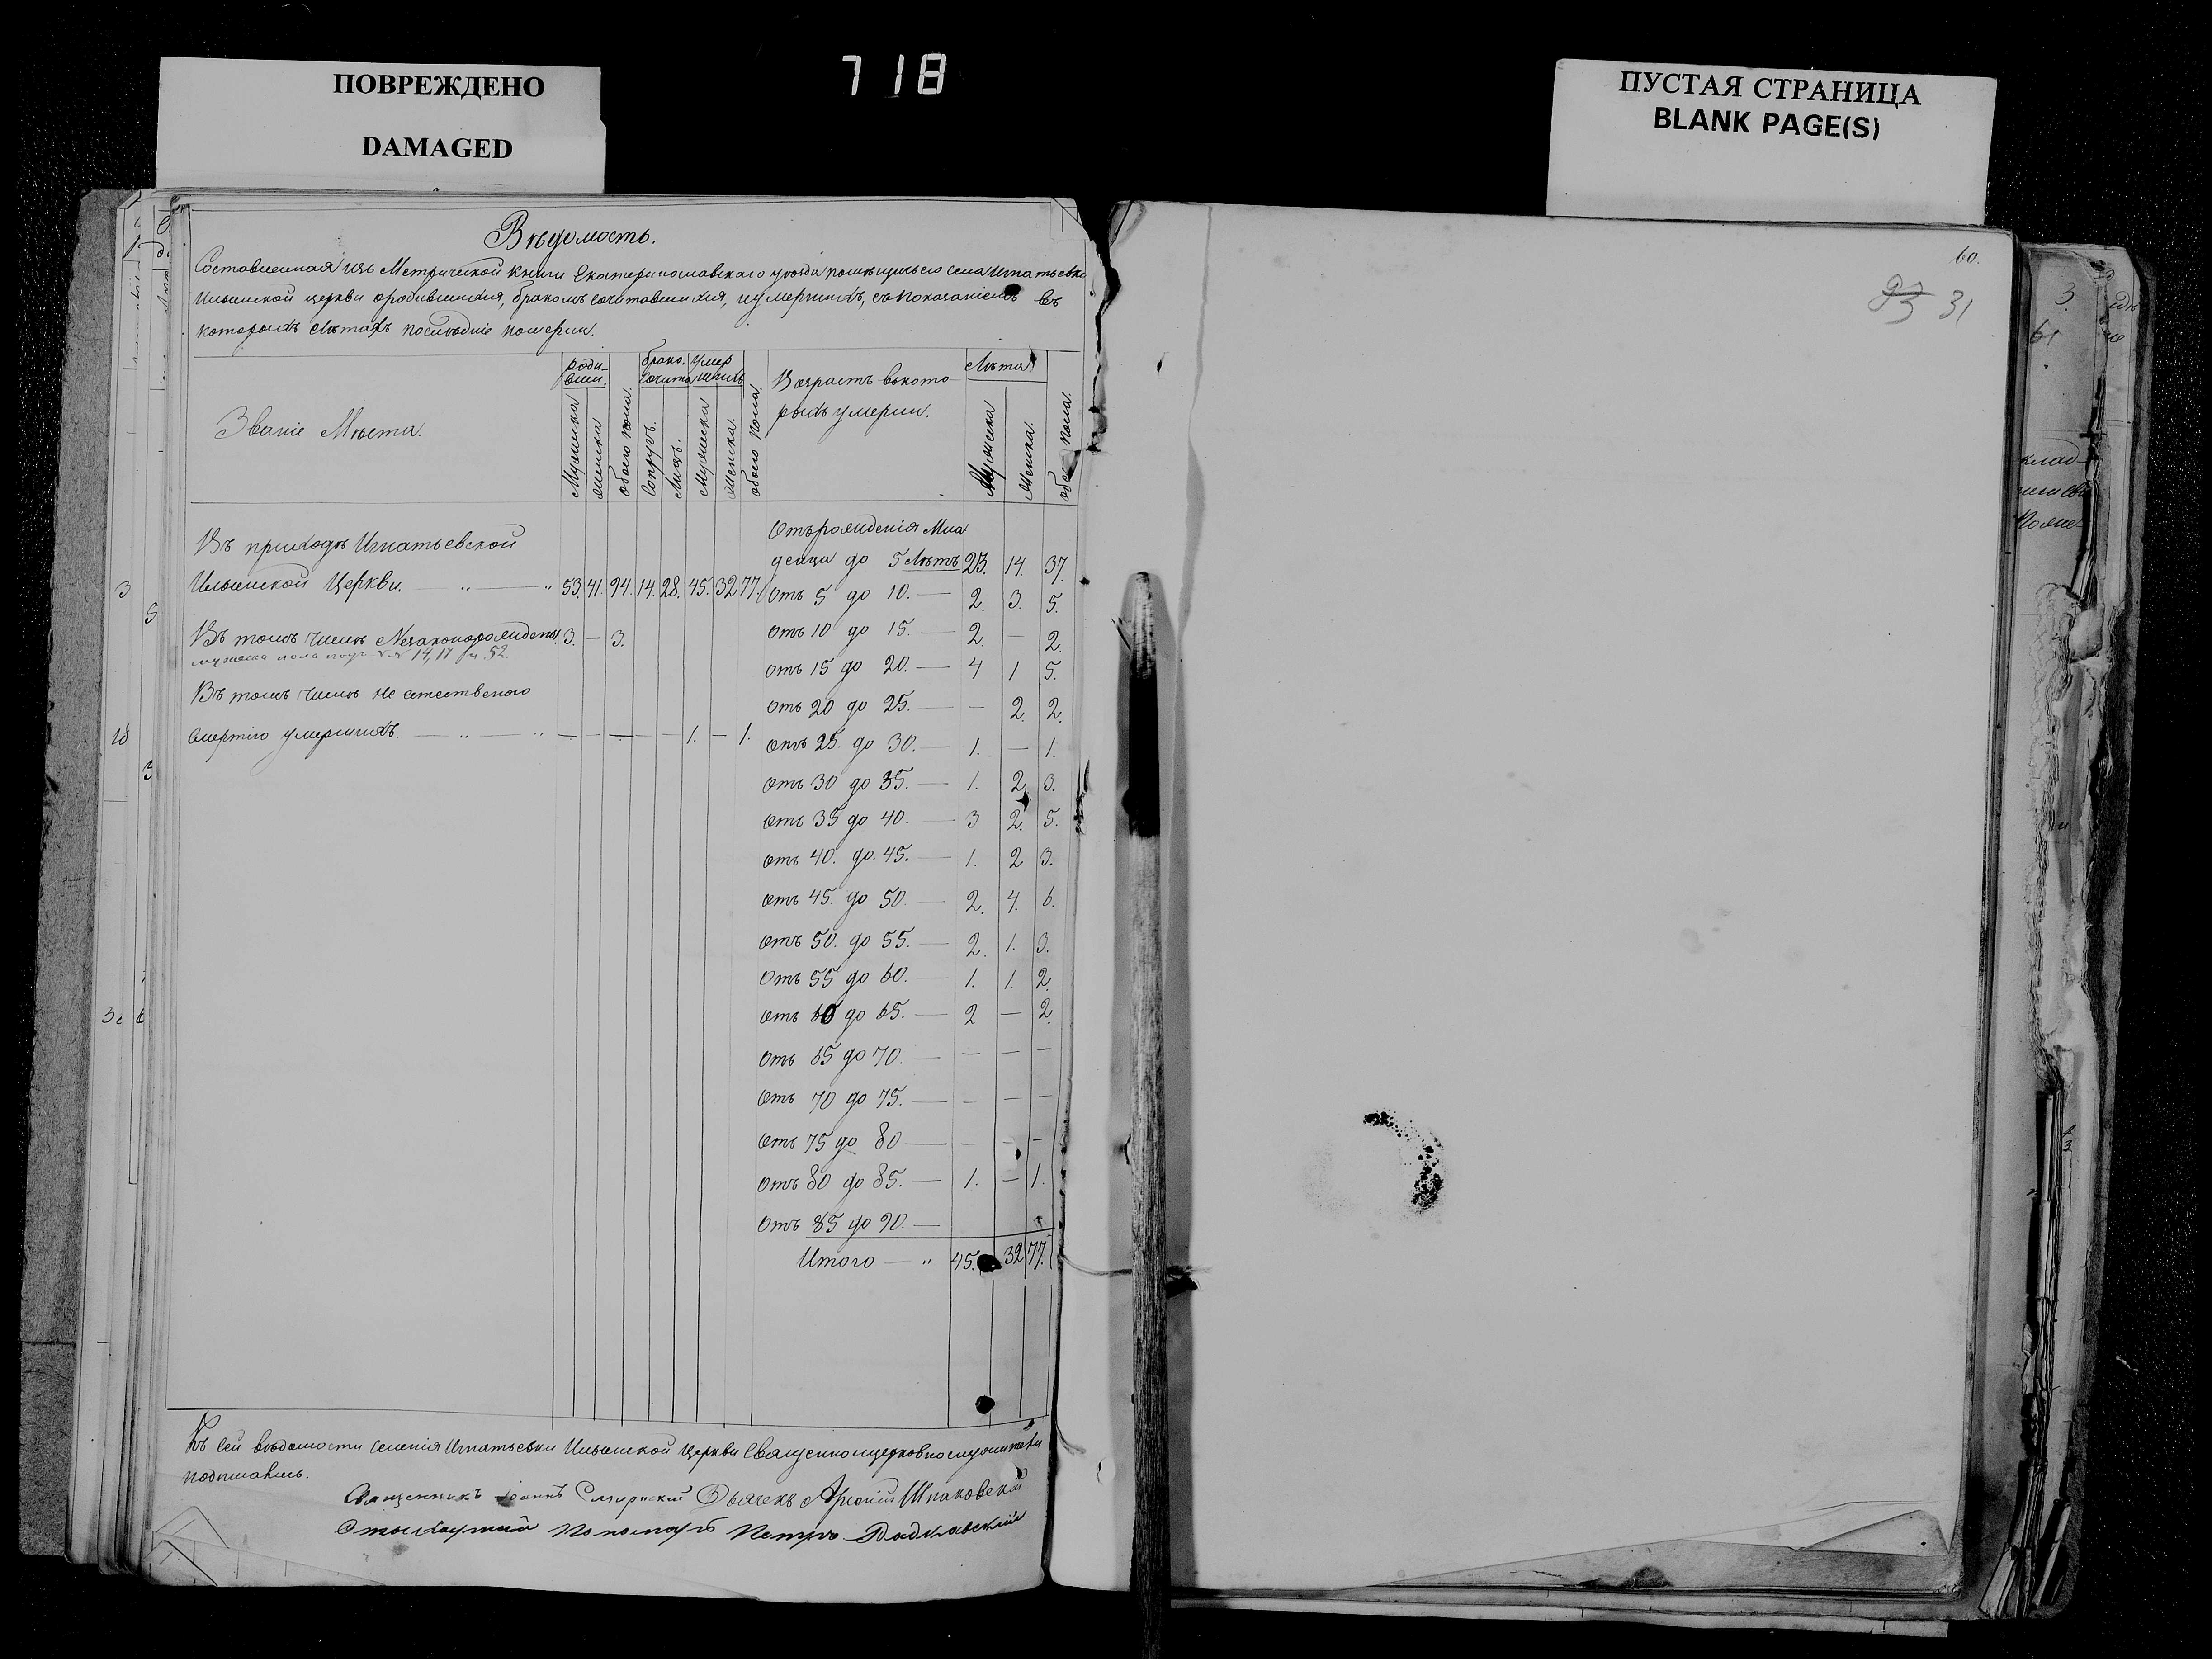 ПОВРЕЖДЕНО
DAMAGED
718
ПУСТАЯ СТРАНИЦА
BLANK PAGE(S)
Вѣдомость.
Составленная изъ Метрической книги Екатеринославскаго уѣзда помѣщичьего села Игнатьевки
Ильинской церкви о родившихся, бракомъ сочитавшихся, и умершихъ, съ показаніемъ въ
которыхъ лѣтахъ послѣдніе померли.
Званіе Мѣста.
роди-
вши.
брако.
сочита
умер
шихъ
Мужеска
женска
обоего пола.
Супруж.
Лицъ.
Мужеска
Женска.
обоего пола.
Возрастъ въ кото-
рыхъ умерли.
Лѣта
Мужеска
Женска.
обое пола.
Въ приходѣ Игнатьевской
Ильинской Церкви. — „ — „ 53. 41. 94. 14. 28. 45. 32 77.
Въ томъ числѣ Незаконорожденн. 3. — 3.
мужеска пола подъ №№ 14, 17 и 52.
Въ томъ числѣ не естественою
смертію умершихъ. — „ — „ — — — — — 1. — 1.
Отъ рожденія Мла
денца до 5 Лѣтъ 23. 14. 37.
Отъ 5 до 10. — 2. 3. 5.
Отъ 10 до 15. — 2. — 2.
Отъ 15 до 20. — 4 1 5.
Отъ 20 до 25. — — 2. 2.
Отъ 25. до 30. — 1. — 1.
Отъ 30 до 35. — 1. 2 3.
Отъ 35 до 40. — 3 2. 5.
Отъ 40. до 45. — 1. 2 3.
Отъ 45. до 50. — 2. 4. 6.
Отъ 50. до 55. — 2. 1. 3.
Отъ 55 до 60. — 1. 1. 2.
Отъ 60 до 65. — 2 — 2.
Отъ 65 до 70. — — — —
Отъ 70 до 75. — — — —
Отъ 75 до 80 — — — —
Отъ 80 до 85. — 1. — 1.
Отъ 85 до 90. —
Итого — „ 45. 32 77.
Къ сей вѣдомости селенія Игнатьевки Ильинской Церкви Священноицерковнослужители
подписались.
Священникъ Іоаннъ Дьячекъ Арсеній Шпаковскій
Пономарь Петръ
60.
31